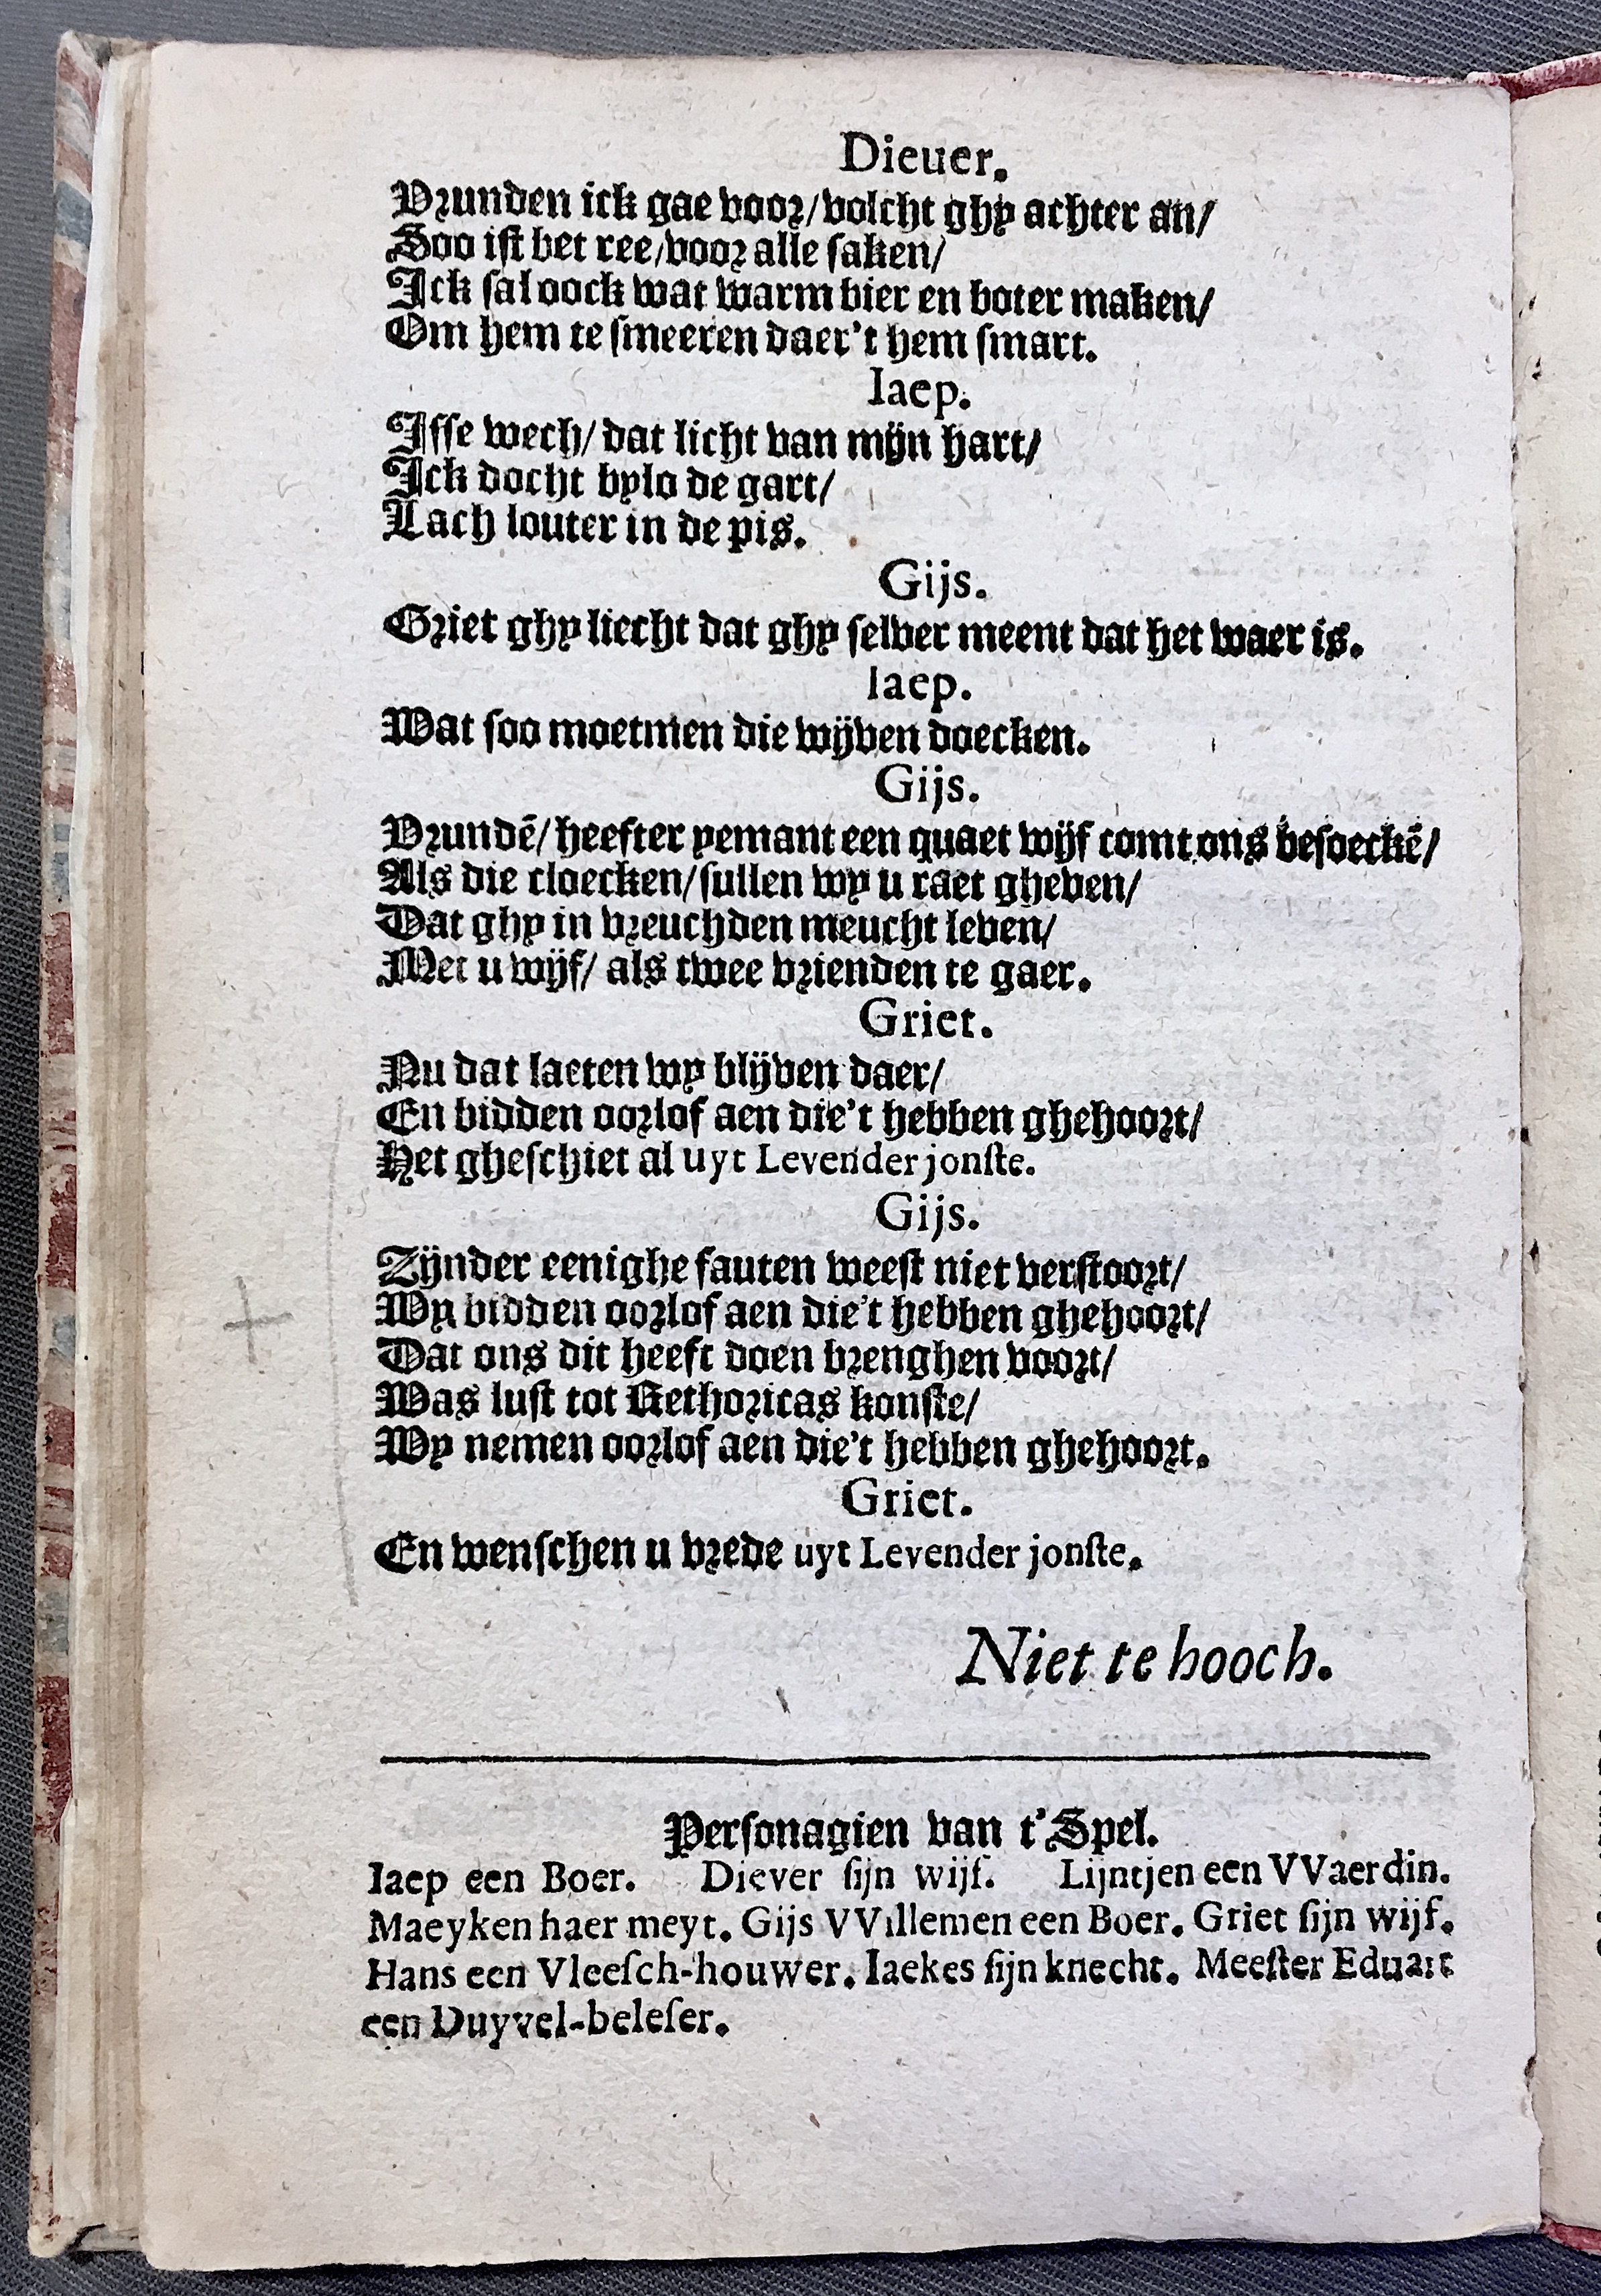 Dieuer.
Vrunden ick gae voor/volcht ghy achter an/
Soo ist bet ree/voor alle saken/
Ick sal oock wat warm bier en boter maken/
Om hem te smeeren daer't hem smart.
Iaep.
Isse wech/ dat licht van mijn hart/
Ick docht bylo de gart/
Lach louter in de pis.
Gijs.
Griet ghy liecht dat ghy selver meent dat het waer is.
Iaep.
Wat soo moetmen die wijven doecken.
Gijs.
Vrundē/ heefter yemant een quaet wijf comt ons besoeckē/
Als die cloecken/sullen wy u raet gheven/
Dat ghy in vreuchden meucht leven/
Met u wijf/ als twee vrienden te gaer.
Griet.
Nu dat laeten wy blijven daer/
En bidden oorlof aen die't hebben ghehoort/
Het gheschiet al uyt Levender jonste.
Gijs.
Zijnder eenighe fauten weest niet verstoort/
Wy bidden oorlof aen die't hebben ghehoort/
Dat ons dit heeft doen brenghen voort/
Was lust tot Rethoricas konste/
Wy nemen oorlof aen die't hebben ghehoort.
Griet.
En wenschen u vrede uyt Levender jonste.
Niet te hooch.
Personagien van t'Spel.
Iaep een Boer. Diever sijn wijf. Lijntjen een VVaerdin.
Maeyken haer meyt. Gijs VVillemen een Boer. Griet sijn wijf.
Hans een Vleesch-houwer. Iaekes sijn knecht. Meester Eduart
een Duyvel-beleser.